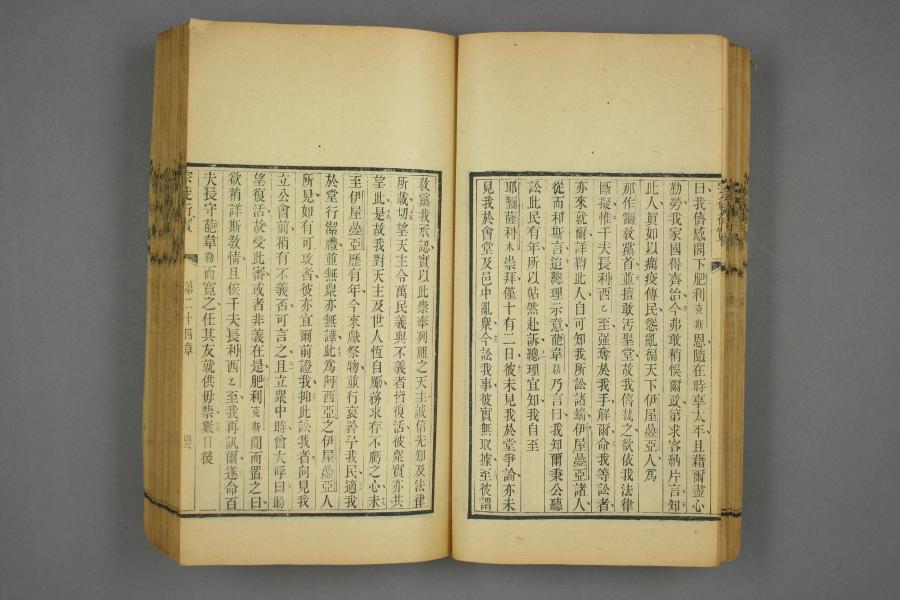 曰我儕感閣下肥利克斯恩隨在時享太平且藉爾盡心
勤勞我家國得齊治今弗敢稍悞爾政第求容納片言知
此人眞如以癘疫傳民慫亂徧天下伊屋疉亞人爲
那作黨首並擅敢汚聖堂故我儕裁之欲依我法律
斷擬惟千夫長利西乙至强奪於我手解爾命我等訟者
亦來就爾詳鞫此人自可知我所訟諸端伊屋疉亞諸人
從而和斯言適總理示意葩韋勒乃言曰我知爾秉公聽
訟此民有年所以帖然赴訴總理宜知我自至
耶薩利木崇拜僅十有二日彼未見我於堂爭論亦未
見我於會堂及邑中亂衆今訟我事彼實無取據至彼謂
敎黨我承認實以此崇奉列祖之天主誠信先知及法律
所載切望天主令萬民義與不義者將復活彼衆實亦共
望此是故我對天主及世人恆自勵務求存不虧之心未
至伊屋疉亞歷有年今來獻祭物並行哀矜予我民適我
於堂行潔禮並無衆亦無譁此爲阿西亞之伊屋疉亞人
所見如有可攻者彼亦宜爾前證我抑此訟我者向見我
立公會前稍有不義否可言之且立衆中時曾大呼曰盼
望復活故受此審或者非義在是肥利克斯聞而置之曰
欲稍詳斯敎情且俟千夫長利西乙至我再訊爾遂命百
夫長守葩韋勒而寬之任其友就供毋禁數日後
宗徒行實
第二十四章